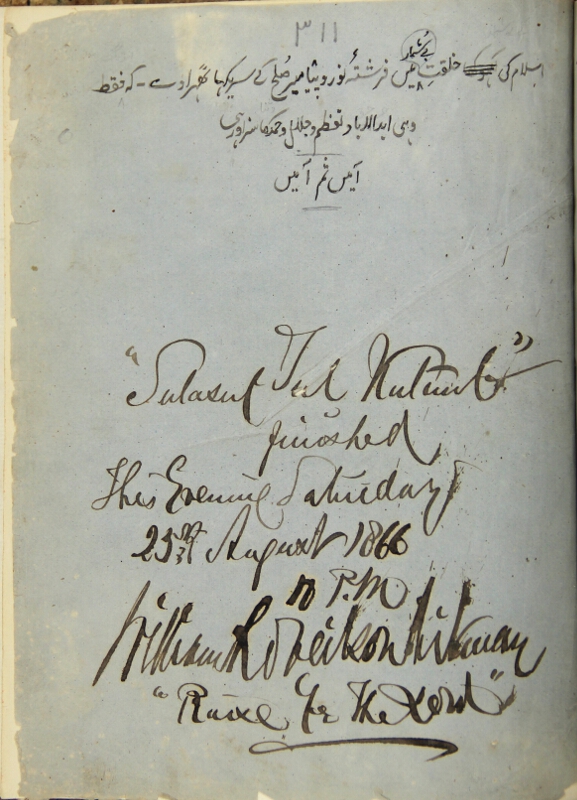 ٣١١
بے شمار
اسلام کی خلقت میں فرشتۂ نور و پیامبر صلح کے سریکہا ٹھہرادے - کہ فقط
وہی ابدالاباد تعظیم و جلال و حمد کا سزاوار ہے
آمین ثم آمین
"Sulasut Tul Kutub"
finished
This Evening Saturday
25th August 1866
10 P.M
William Robertson Aikman
"Praise Ye The Lord"